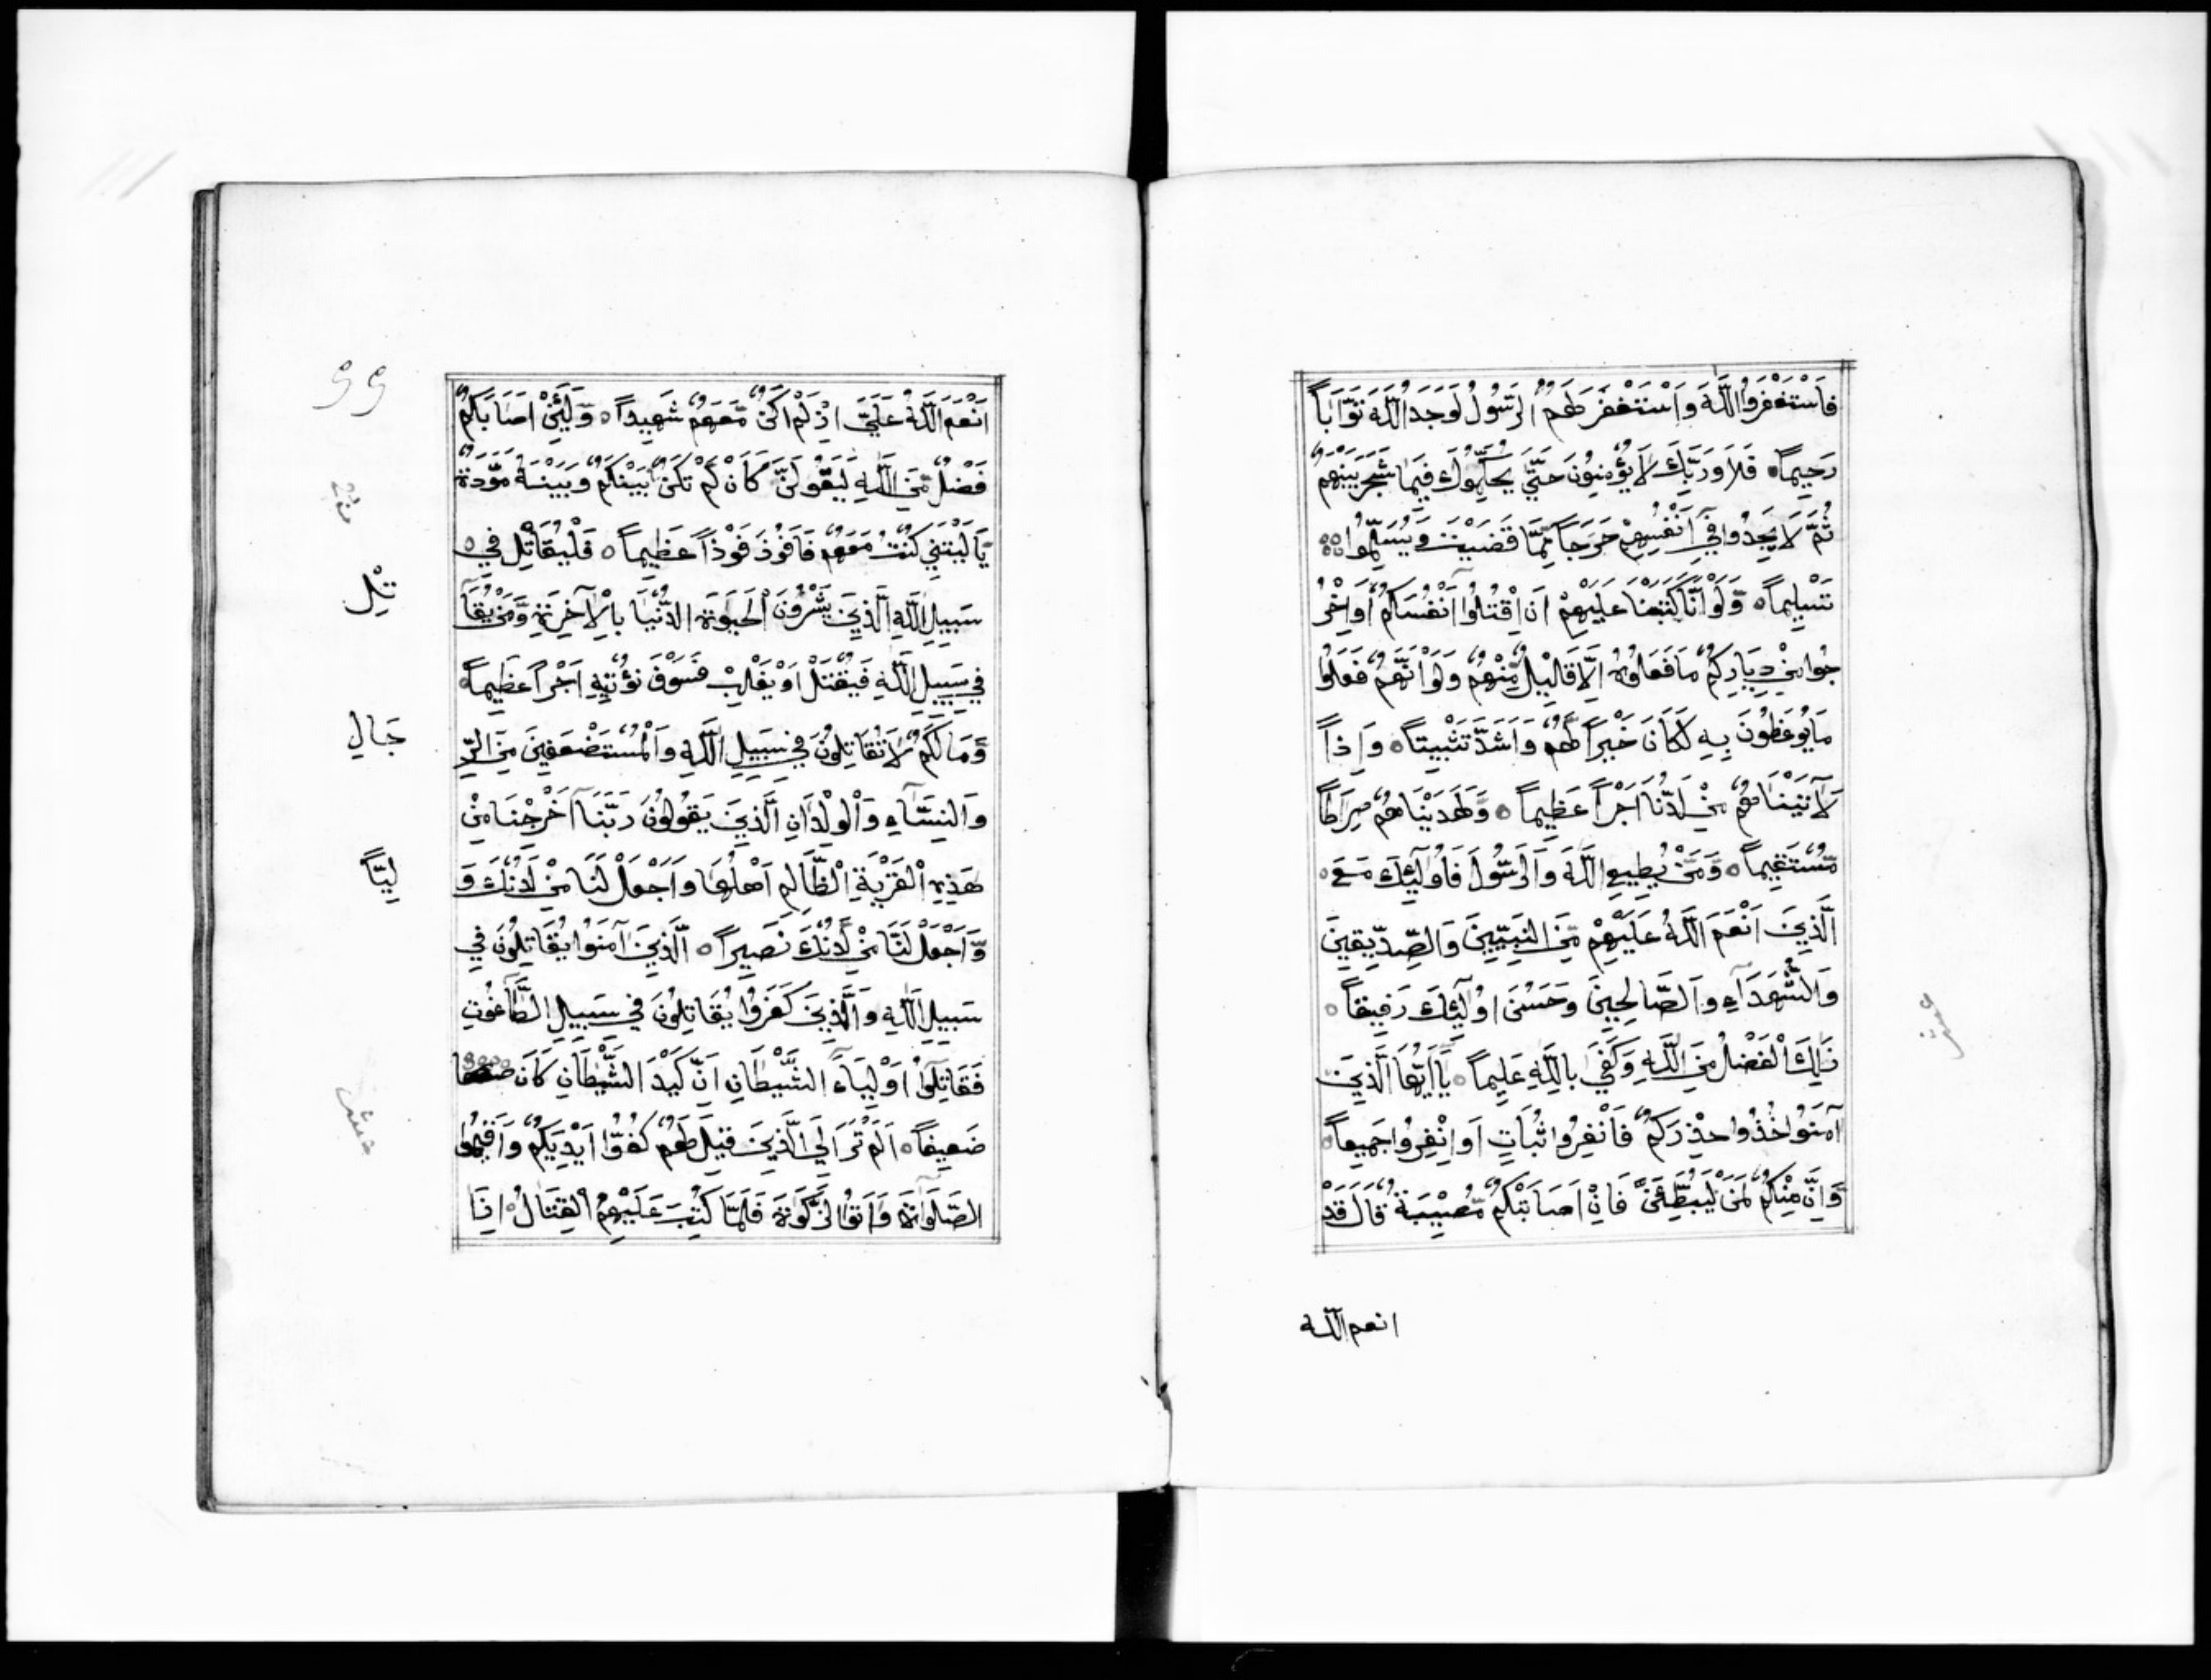 فَاَسْتَغْفَرُوا اللّٰهَ وَاَسْتَغْفَرَ لَهُمُ الرَّسُولُ لَوَجَدُ اللّٰهَ تَوَّاباً
رَحِيماً ۝ فَلاَ وَرَبِّكَ لاَ يُؤْمِنُونَ حَتَّى يُحَكِّمُوكَ فِيمَا شَجَرَ بَيْنَهُمْ
ثُمَّ لاَ يَجِدُوا فِي اَنْفُسِهِمْ حَرَجاً مِمَّا قَضَيْتَ وَيُسَلِّمُوا
تَسْلِيماً ۝ وَلَوْ اَنَّا كَتَبْنَا عَلَيْهِمْ اَنِ اقْتُلُوا اَنْفُسَكُمْ اَوِ اخْرُ
جُوا مِنْ دِيَارِكُمْ مَا فَعَلُوْهُ اِلَّا قَلِيْلٌ مِّنْهُمْ وَلَوْ اَنَّهُمْ فَعَلُوا
مَا يُوعَظُونَ بِهِ لَكَانَ خَيْراً لَّهُمْ وَاَشَدَّ تَثْبِيتاً ۝ وَاِذاً
لَآتَيْنَاهُمْ مِنْ لَدُنَّا اَجْراً عَظِيماً ۝ وَلَهَدَيْنَاهُمْ صِرَاطاً
مُّسْتَقِيماً ۝ وَمَنْ يُطِيعِ اللّٰهَ وَالرَّسُولَ فَاُولَٓئِكَ مَعَ ۝
الَّذِينَ اَنْعَمَ اللّٰهُ عَلَيْهِمْ مِّنَ النَّبِيِّينَ وَالصِّدِّيقِينَ
وَالشُّهَدَآءِ وَالصَّالِحِينَ وَحَسُنَ اُولَٓئِكَ رَفِيقاً ۝
ذَلِكَ الْفَضْلُ مِنَ اللّٰهِ وَكَفَى بِاللّٰهِ عَلِيماً ۝ يَآاَيُّهَا الَّذِينَ
آمَنُوا خُذُوا حِذْرَكُمْ فَانْفِرُوا ثُبَاتٍ اَوِ انْفِرُوا جَمِيعاً ۝
وَاِنَّ مِنْكُمْ لَمَنْ لَيُبَطِّئَنَّ فَاِنْ اَصَابَتْكُمْ مُّصِيْبَةٌ قَالَ قَدْ
انعم اللّٰه
اَنْعَمَ اللّٰهُ عَلَيَّ اِذْ لَمْ اَكُنْ مَّعَهُمْ شَهِيداً ۝ وَلَئِنْ اَصَابَكُمْ
فَضْلٌ مِّنَ اللّٰهِ لَيَقُولَنَّ كَاَنْ لَمْ تَكُنْ بَيْنَكُمْ وَبَيْنَهُ مَوَّدَةٌ
يَا لَيْتَنِي كُنْتُ مَعَهُمْ فَاَفُوْزَ فَوْزاً عَظِيماً ۝ فَلْيُقَاتِلْ فِي ۝
سَبِيلِ اللّٰهِ الَّذِينَ يَشْرُونَ الْحَيَوةَ الدُّنْيَا بِالْآخِرَةِ وَمَنْ يُقَآ
تِلْ
فِي سَبِيلِ اللّٰهِ فَيُقْتَلْ اَوْ يَغْلِبْ فَسَوْفَ نُؤْتِيهِ اَجْراً عَظِيماً
وَمَا لَكُمْ لاَ تُقَاتِلُونَ فِي سَبِيلِ اللّٰهِ وَالْمُسْتَضْعَفِينَ مِنَ الرِّ
جَالِ
وَالنِّسَآءِ وَالْوِلْدَانِ الَّذِينَ يَقُولُونَ رَبَّنَا اَخْرِجْنَا مِنْ
هَذِهِ الْقَرْيَةِ الظَّالِمِ اَهْلُهَا وَاجْعَلْ لَنَا مِنْ لَدُنْكَ وَ
لِيّاً
وَّاجْعَلْ لَنَا مِنْ لَدُنْكَ نَصِيراً ۝ اَلَّذِينَ آمَنُوا يُقَاتِلُونَ فِي
سَبِيلِ اللّٰهِ وَالَّذِينَ كَفَرُوا يُقَاتِلُونَ فِي سَبِيلِ الطَّاغُوْتِ
فَقَاتِلُوا اَوْلِيَآءَ الشَّيْطَانِ اِنَّ كَيْدَ الشَّيْطَانِ كَانَ
ضَعِيفاً ۝ اَلَمْ تَرَ اِلَى الَّذِينَ قِيلَ لَهُمْ كُفُّوا اَيْدِيَكُمْ وَاَقِيمُوا
الصَّلَوٰةَ وَآتَوُا الزَّكَوٰةَ فَلَمَّا كُتِبَ عَلَيْهِمُ الْقِتَالُ اِذَا